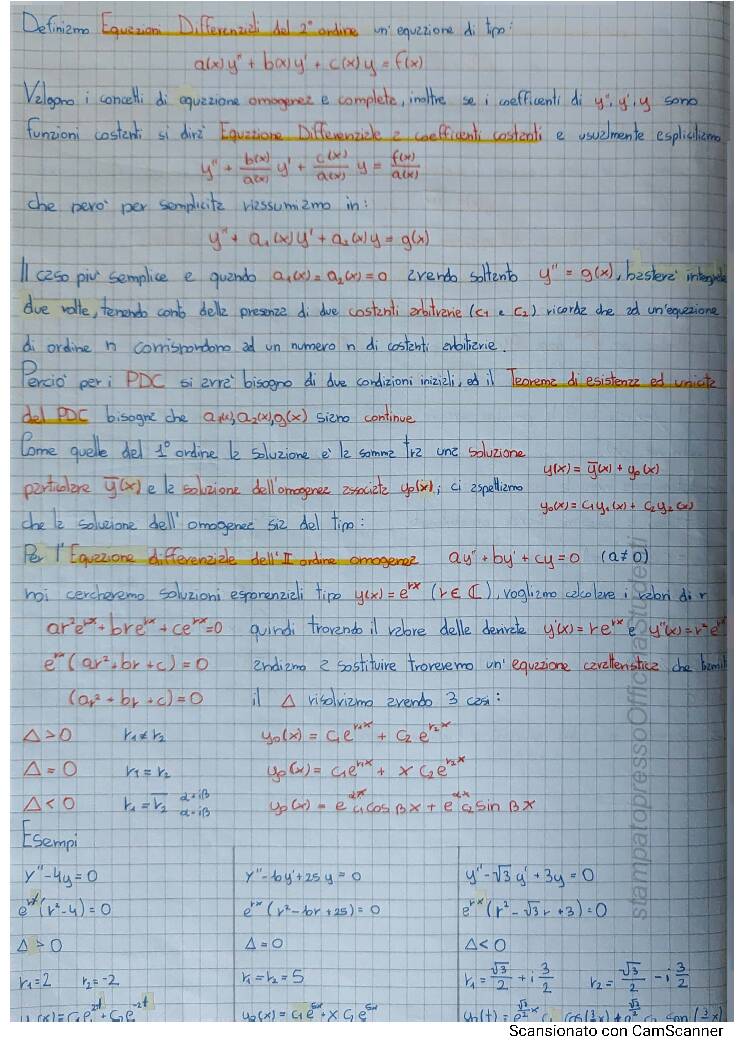 Definiamo Equazioni Differenziali del 2° ordine un'equazione di tipo:
a(x)y" + b(x)y' + c(x)y = f(x)
Valgono i concetti di equazione omogenea e completa, inoltre se i coefficenti di y", y', y sono
funzioni costanti si dirà Equazione Differenziale a coefficenti costanti e usualmente esplicitiamo
y" + b(x)/a(x) y' + c(x)/a(x) y = f(x)/a(x)
che però per semplicità riassumiamo in:
y" + a₁(x)y' + a₂(x)y = g(x)
Il caso più semplice e quando a₁(x) = a₂(x) = 0 avendo soltanto y" = g(x), basterà
due volte, tenendo conto della presenza di due costanti arbitrarie (c₁ e c₂) ricorda che ad un'equazione
di ordine n corrispondono ad un numero n di costanti arbitrarie.
Perciò per i PDC si avrà bisogno di due condizioni iniziali, ed il Teorema di esistenza ed unicità
del PDC bisogna che a₁(x), a₂(x), g(x) siano continue
Come quelle del 1° ordine la soluzione è la somma tra una soluzione
y(x) = ȳ(x) + y₀(x)
particolare ȳ(x) e la soluzione dell'omogenea associata y₀(x); ci aspettiamo
y₀(x) = c₁y₁(x) + c₂y₂(x)
che la soluzione dell'omogenea sia del tipo:
Per l'Equazione differenziale dell'II ordine omogenea ay" + by' + cy = 0 (a ≠ 0)
noi cercheremo soluzioni esponenziali tipo y(x) = e^rx (r ∈ ℂ), vogliamo calcolare i valori di r
ar²e^rx + bre^rx + ce^rx = 0 quindi trovando il valore delle derivate y'(x) = re^rx e y"(x) = r²e^rx
e^rx (ar² + br + c) = 0 andiamo a sostituire troveremo un'equazione caratteristica che
(ar² + br + c) = 0 il Δ risolviamo avendo 3 casi:
Δ > 0 r₁ ≠ r₂ y₀(x) = c₁e^r₁x + c₂e^r₂x
Δ = 0 r₁ = r₂ y₀(x) = c₁e^r₁x + x c₂e^r₂x
Δ < 0 r₁ = r̄₂ α+iβ α-iβ y₀(x) = e^αx c₁ cos βx + e^αx c₂ sin βx
Esempi
y" - 4y = 0 y" - 10y' + 25y = 0 y" - √3 y' + 3y = 0
e^rx (r² - 4) = 0 e^rx (r² - 10r + 25) = 0 e^rx (r² - √3 r + 3) = 0
Δ > 0 Δ = 0 Δ < 0
r₁ = 2 r₂ = -2 r₁ = r₂ = 5 r₁ = √3/2 + i 3/2 r₂ = √3/2 - i 3/2
y₀(x) = c₁e^5x + x c₁e^5x
stampatopressoOfficinaStudenti
Scansionato con CamScanner